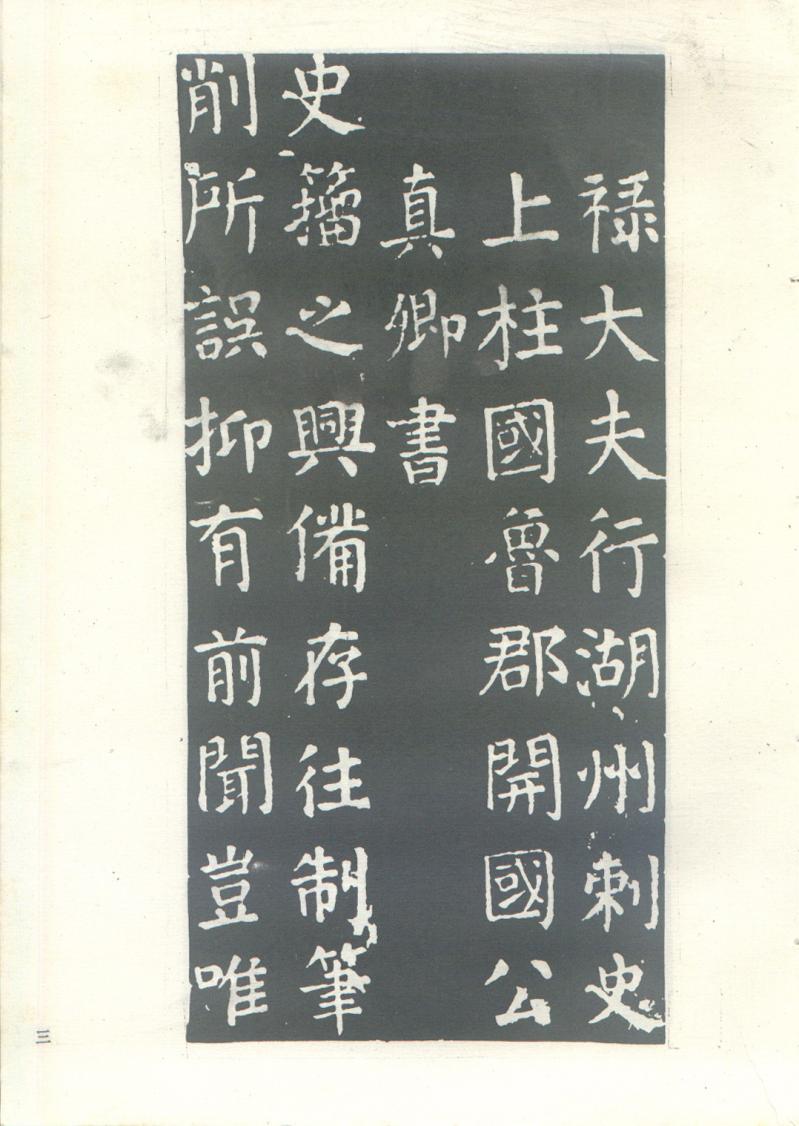 禄大夫行湖州刺史
上柱國魯郡開國公
真卿書
史籀之興備存往制筆
削所誤抑有前聞豈唯
三